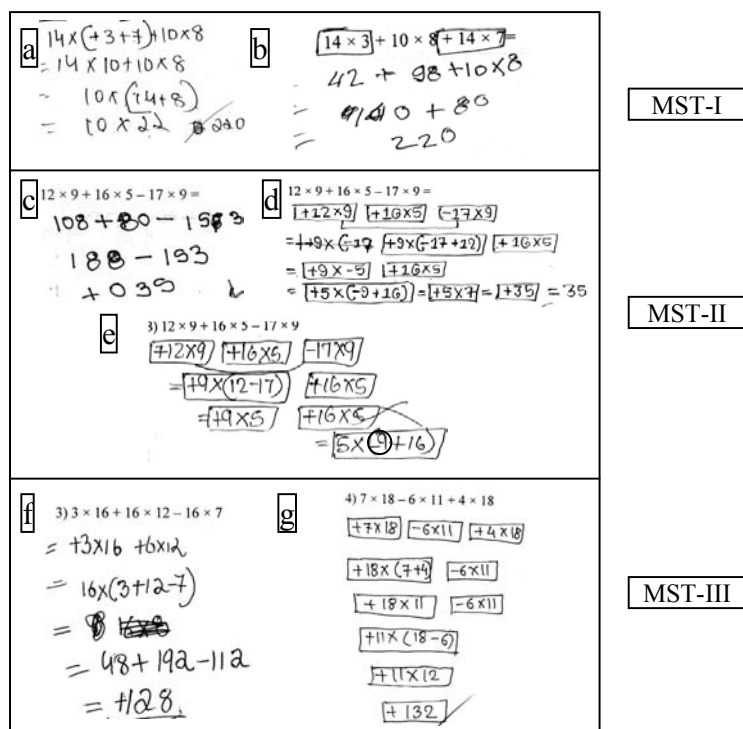 a
14×(+3+7)+10×8
=14×10+10×8
= 10×(14+8)
= 10×22 220
b
14 × 3 + 10 × 8 + 14 × 7 =
42 + 98+10×8
= 140 + 80
= 220
MST-I
c
12 × 9 + 16 × 5 – 17 × 9 =
108+80-153
188-153
+035
d
12 × 9 + 16 × 5 – 17 × 9 =
+12×9 +16×5 -17×9
=+9×(-17 +9×(-17+12) +16×5
= +9×-5 +16×5
= +5×(-9+16) = +5×7 = +35 = 35
e
3) 12 × 9 + 16 × 5 – 17 × 9
+12×9 +16×5 -17×9
= +9×(12-17) +16×5
= +9×5 +16×5
= 5×(-9+16)
MST-II
f
3) 3 × 16 + 16 × 12 – 16 × 7
= +3×16 +6×12
= 16×(3+12-7)
= 8
= 48+192-112
= +128
g
4) 7 × 18 – 6 × 11 + 4 × 18
+7×18 -6×11 +4×18
+18×(7+4) -6×11
+18×11 -6×11
+11×(18-6)
+11×12
+132
MST-III